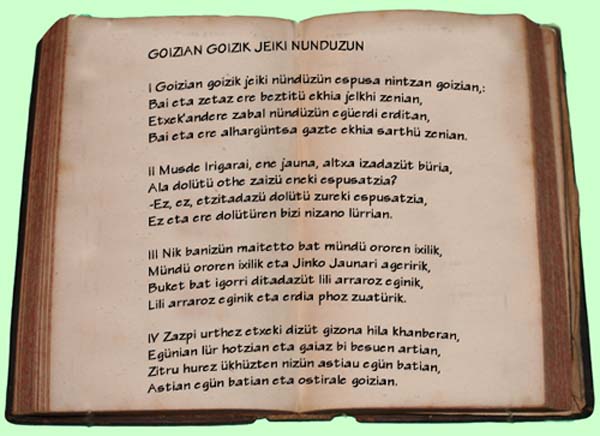 GOIZIAN GOIZIK JEIKI NUNDUZUN
I Goizian goizik jeiki nündüzün espusa nintzan goizian,:
Bai eta zetaz ere beztitü ekhia jelkhi zenian,
Etxek'andere zabal nündüzün egüerdi erditan,
Bai eta ere alhargüntsa gazte ekhia sarthü zenian.
II Musde Irigarai, ene jauna, altxa izadazüt büria,
Ala dolütü othe zaizü eneki espusatzia?
-Ez, ez, etzitadazü dolütü zureki espusatzia,
Ez eta ere dolütüren bizi nizano lürrian.
III Nik banizün maitetto bat mündü ororen ixilik,
Mündü ororen ixilik eta Jinko Jaunari ageririk,
Buket bat igorri ditadazüt lili arraroz eginik,
Lili arraroz eginik eta erdia phoz zuatürik.
IV Zazpi urthez etxeki dizüt gizona hila khanberan,
Egünian lür hotzian eta gaiaz bi besuen artian,
Zitru hurez ükhüzten nizün astiau egün batian,
Astian egün batian eta ostirale goizian.